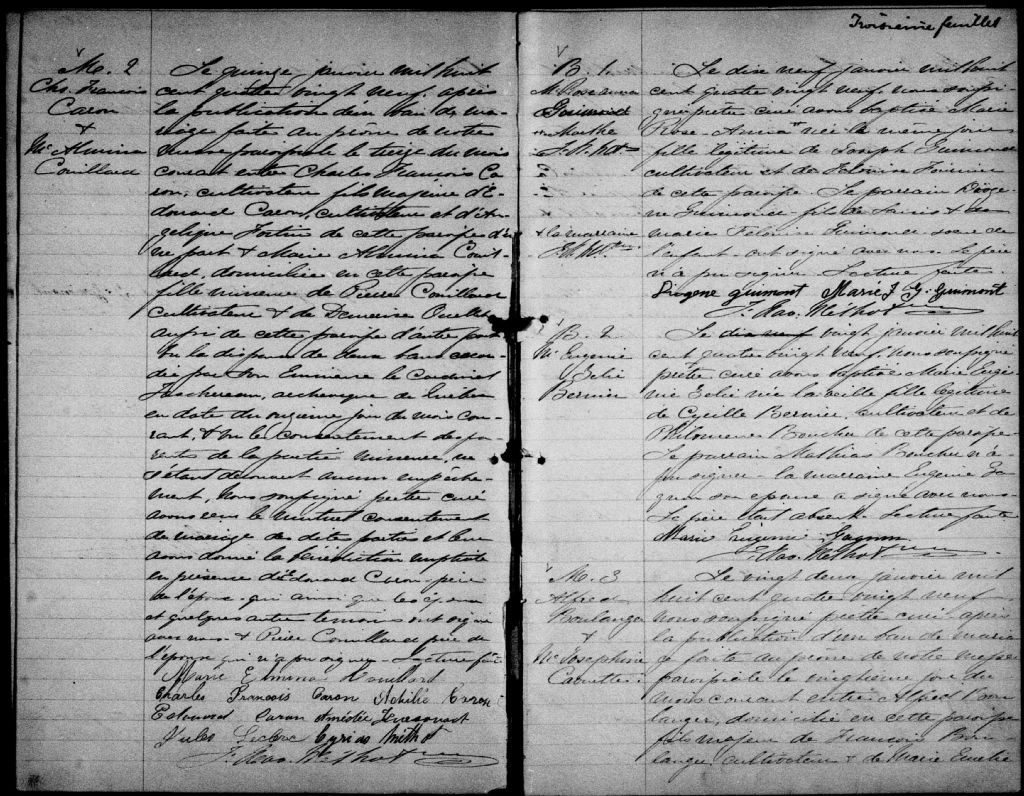 Troisième feuillet
M. 2
Chs. François
Caron
+
Me Almina
Couillard
Le quinze janvier mil huit
cent quatre vingt neuf, après
la publication d'un ban de ma-
riage faite au prône de notre
messe paroissiale le treize du mois
courant entre Charles François Ca-
ron, cultivateur fils majeur d'E-
douard Caron, cultivateur et d'An-
gelique Fortin de cette paroisse d'u-
ne part & Marie Almina Couil-
lard, domiciliée en cette paroisse
fille mineure de Pierre Couillard
cultivateur & de Demerise Ouellet
aussi de cette paroisse d'autre part
Vu la dispense de deux bans accor-
dée par Son Eminence le Cardinal
Taschereau, archevêque de Québec
en date du onzième jour du mois cou-
rant, & vu le consentement des pa-
rents de la partie mineure, ne
s'étant découvert aucun empêche-
ment, Nous soussigné prêtre curé
avons reçu le mutuel consentement
de mariage des dites parties et leur
avons donné la bénédiction nuptiale
en présence d'Edouard Caron père
de l'époux qui ainsi que les époux
et quelques autres témoins ont signé
avec nous & Pierre Couillard père de
l'épouse qui n'a pu signer. Lecture faite
Marie Elmina Couillard
Charles Francois Caron Achille Caron
Edouard Caron Amédée
Jules Leclerc Cyrias Méthot
F. Xav. Méthot
B. 1.
M. Rose Anna
Guimond
Le dix neuf janvier mil huit
cent quatre vingt neuf, nous soussi-
gné prêtre curé avons baptisé Marie
Rose-Anna née le même jour
fille légitime de Joseph Guimond
cultivateur et de Fournier
de cette paroisse. Le parrain Dioge-
ne Guimond fils de Louis & la
marraine
Marie Guimond soeur de
l'enfant ont signé avec nous. Le père
n'a pu signer. Lecture faite.
Diogene Guimont Marie J G. Guimont
F. Xav. Méthot
B. 2.
Me Eugenie
Zelie
Bernier
Le dix neuf vingt janvier mil huit
cent quatre vingt neuf, nous soussigné
prêtre curé avons baptisé Marie Eugé-
nie Zelie née la veille fille légitime
de Cyrille Bernier, cultivateur et de
Philomene Boucher de cette paroisse.
Le parrain Mathias Boucher n'a
pu signer. la marraine Eugenie Ga-
gnon son épouse a signé avec nous.
Le père était absent. Lecture faite
Marie Eugenie Gagnon
F. Xav. Méthot
M. 3
Alfred
Boulanger
+
Me Josephine
Caouette
Le vingt deux janvier mil
huit cent quatre vingt neuf
nous soussigné prêtre curé après
la publication d'un ban de maria-
ge faite au prône de notre messe
paroissiale le vingtième jour du
mois courant entre Alfred Bou-
langer, domicilié en cette paroisse
fils majeur de François Bou-
langer, cultivateur & de Marie Emelie